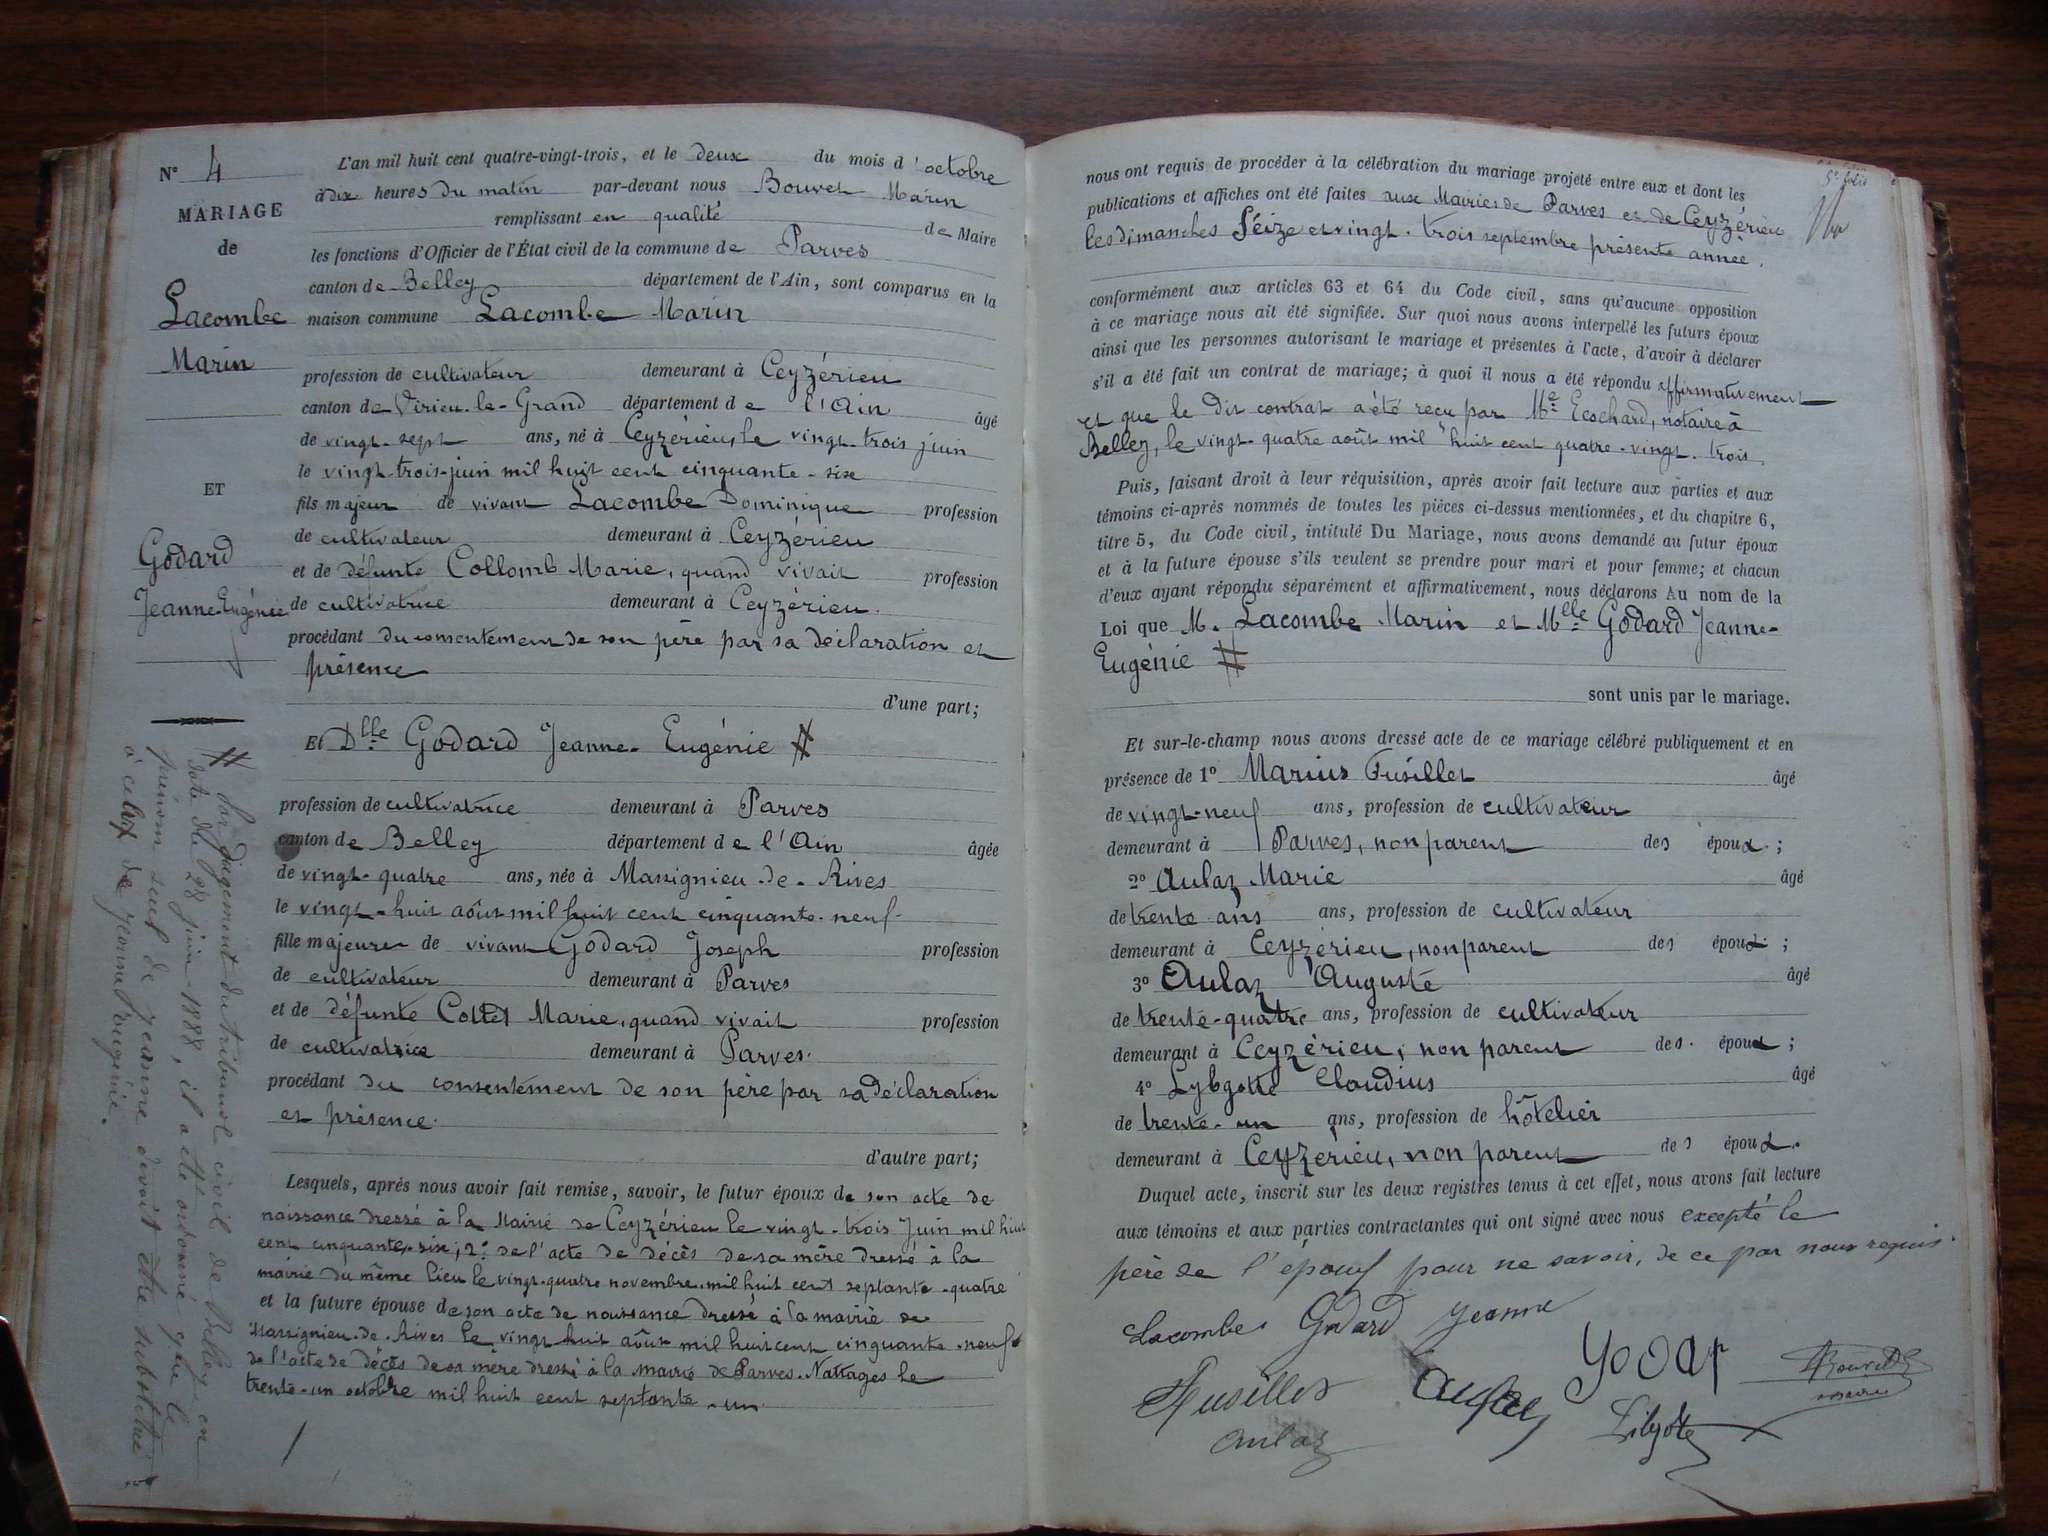 N° 4
MARIAGE
de
Lacombe
Marin
ET
Godard
Jeanne-Eugénie
L'an mil huit cent quatre-vingt-trois, et le deux du mois d'octobre
à dix heures du matin par-devant nous Bouvet Marin
remplissant en qualité de Maire
les fonctions d'Officier de l'État civil de la commune de Parves
canton de Belley département de l'Ain, sont comparus en la
maison commune Lacombe Marin
profession de cultivateur demeurant à Ceyzérieu
canton de Virieu-le-Grand département de l'Ain âgé
de vingt-sept ans, né à Ceyzérieu, le vingt-trois juin
le vingt-trois-juin mil huit cent cinquante-six
fils majeur de vivant Lacombe Dominique profession
de cultivateur demeurant à Ceyzérieu
et de défunte Collomb Marie, quand vivait profession
de cultivatrice demeurant à Ceyzérieu.
procédant du consentement de son père par sa déclaration et
présence
d'une part;
Et Dlle Godard Jeanne-Eugénie #
profession de cultivatrice demeurant à Parves
canton de Belley département de l'Ain âgée
de vingt-quatre ans, née à Massignieu-de-Rives
le vingt-huit août mil huit cent cinquante-neuf
fille majeure de vivant Godard Joseph profession
de cultivateur demeurant à Parves
et de défunte Collet Marie, quand vivait profession
de cultivatrice demeurant à Parves.
procédant du consentement de son père par sa déclaration
et présence.
d'autre part;
Lesquels, après nous avoir fait remise, savoir, le futur époux de son acte de
naissance dressé à la Mairie de Ceyzérieu le vingt-trois Juin mil huit
cent cinquante-six; 2° de l'acte de décès de sa mère dressé à la
mairie du même lieu le vingt-quatre novembre mil huit cent septante-quatre
et la future épouse de son acte de naissance dressé à la mairie de
Massignieu-de-Rives le vingt huit août mil huit cent cinquante-neuf
de l'acte de décès de sa mère dressé à la mairie de Parves-Nattages le
trente-un octobre mil huit cent septante-un
# Par Jugement du tribunal civil de Belley en
date du 28 juin 1888, il a été ordonné que le
prénom seul de Jeanne devait être substitué
à celui de Jeanne Eugénie.
5e folio
nous ont requis de procéder à la célébration du mariage projeté entre eux et dont les
publications et affiches ont été faites aux Mairies de Parves et de Ceyzérieu
les dimanches Seize et vingt-trois septembre présente année,
conformément aux articles 63 et 64 du Code civil, sans qu'aucune opposition
à ce mariage nous ait été signifiée. Sur quoi nous avons interpellé les futurs époux
ainsi que les personnes autorisant le mariage et présentes à l'acte, d'avoir à déclarer
s'il a été fait un contrat de mariage; à quoi il nous a été répondu affirmativement
et que le dit contrat a été reçu par Me Ecochard, notaire à
Belley, le vingt-quatre août mil huit cent quatre-vingt-trois.
Puis, faisant droit à leur réquisition, après avoir fait lecture aux parties et aux
témoins ci-après nommés de toutes les pièces ci-dessus mentionnées, et du chapitre 6,
titre 5, du Code civil, intitulé Du Mariage, nous avons demandé au futur époux
et à la future épouse s'ils veulent se prendre pour mari et pour femme; et chacun
d'eux ayant répondu séparément et affirmativement, nous déclarons Au nom de la
Loi que M. Lacombe Marin et Mlle Godard Jeanne-
Eugénie #
sont unis par le mariage.
Et sur-le-champ nous avons dressé acte de ce mariage célébré publiquement et en
présence de 1° Marius Fusillet âgé
de vingt-neuf ans, profession de cultivateur
demeurant à Parves, non parent des époux;
2° Aulaz Marie âgé
de trente ans ans, profession de cultivateur
demeurant à Ceyzérieu, non parent des époux;
3° Aulaz Auguste âgé
de trente-quatre ans, profession de cultivateur
demeurant à Ceyzérieu, non parent des époux;
4° Lybgotte Claudius âgé
de trente-un ans, profession de hôtelier
demeurant à Ceyzérieu, non parent des époux.
Duquel acte, inscrit sur les deux registres tenus à cet effet, nous avons fait lecture
aux témoins et aux parties contractantes qui ont signé avec nous excepté le
père de l'époux pour ne savoir, de ce par nous requis.
Lacombe Godard Jeanne
Fusillet Aulaz Godar Bouvet
maire
Aulaz